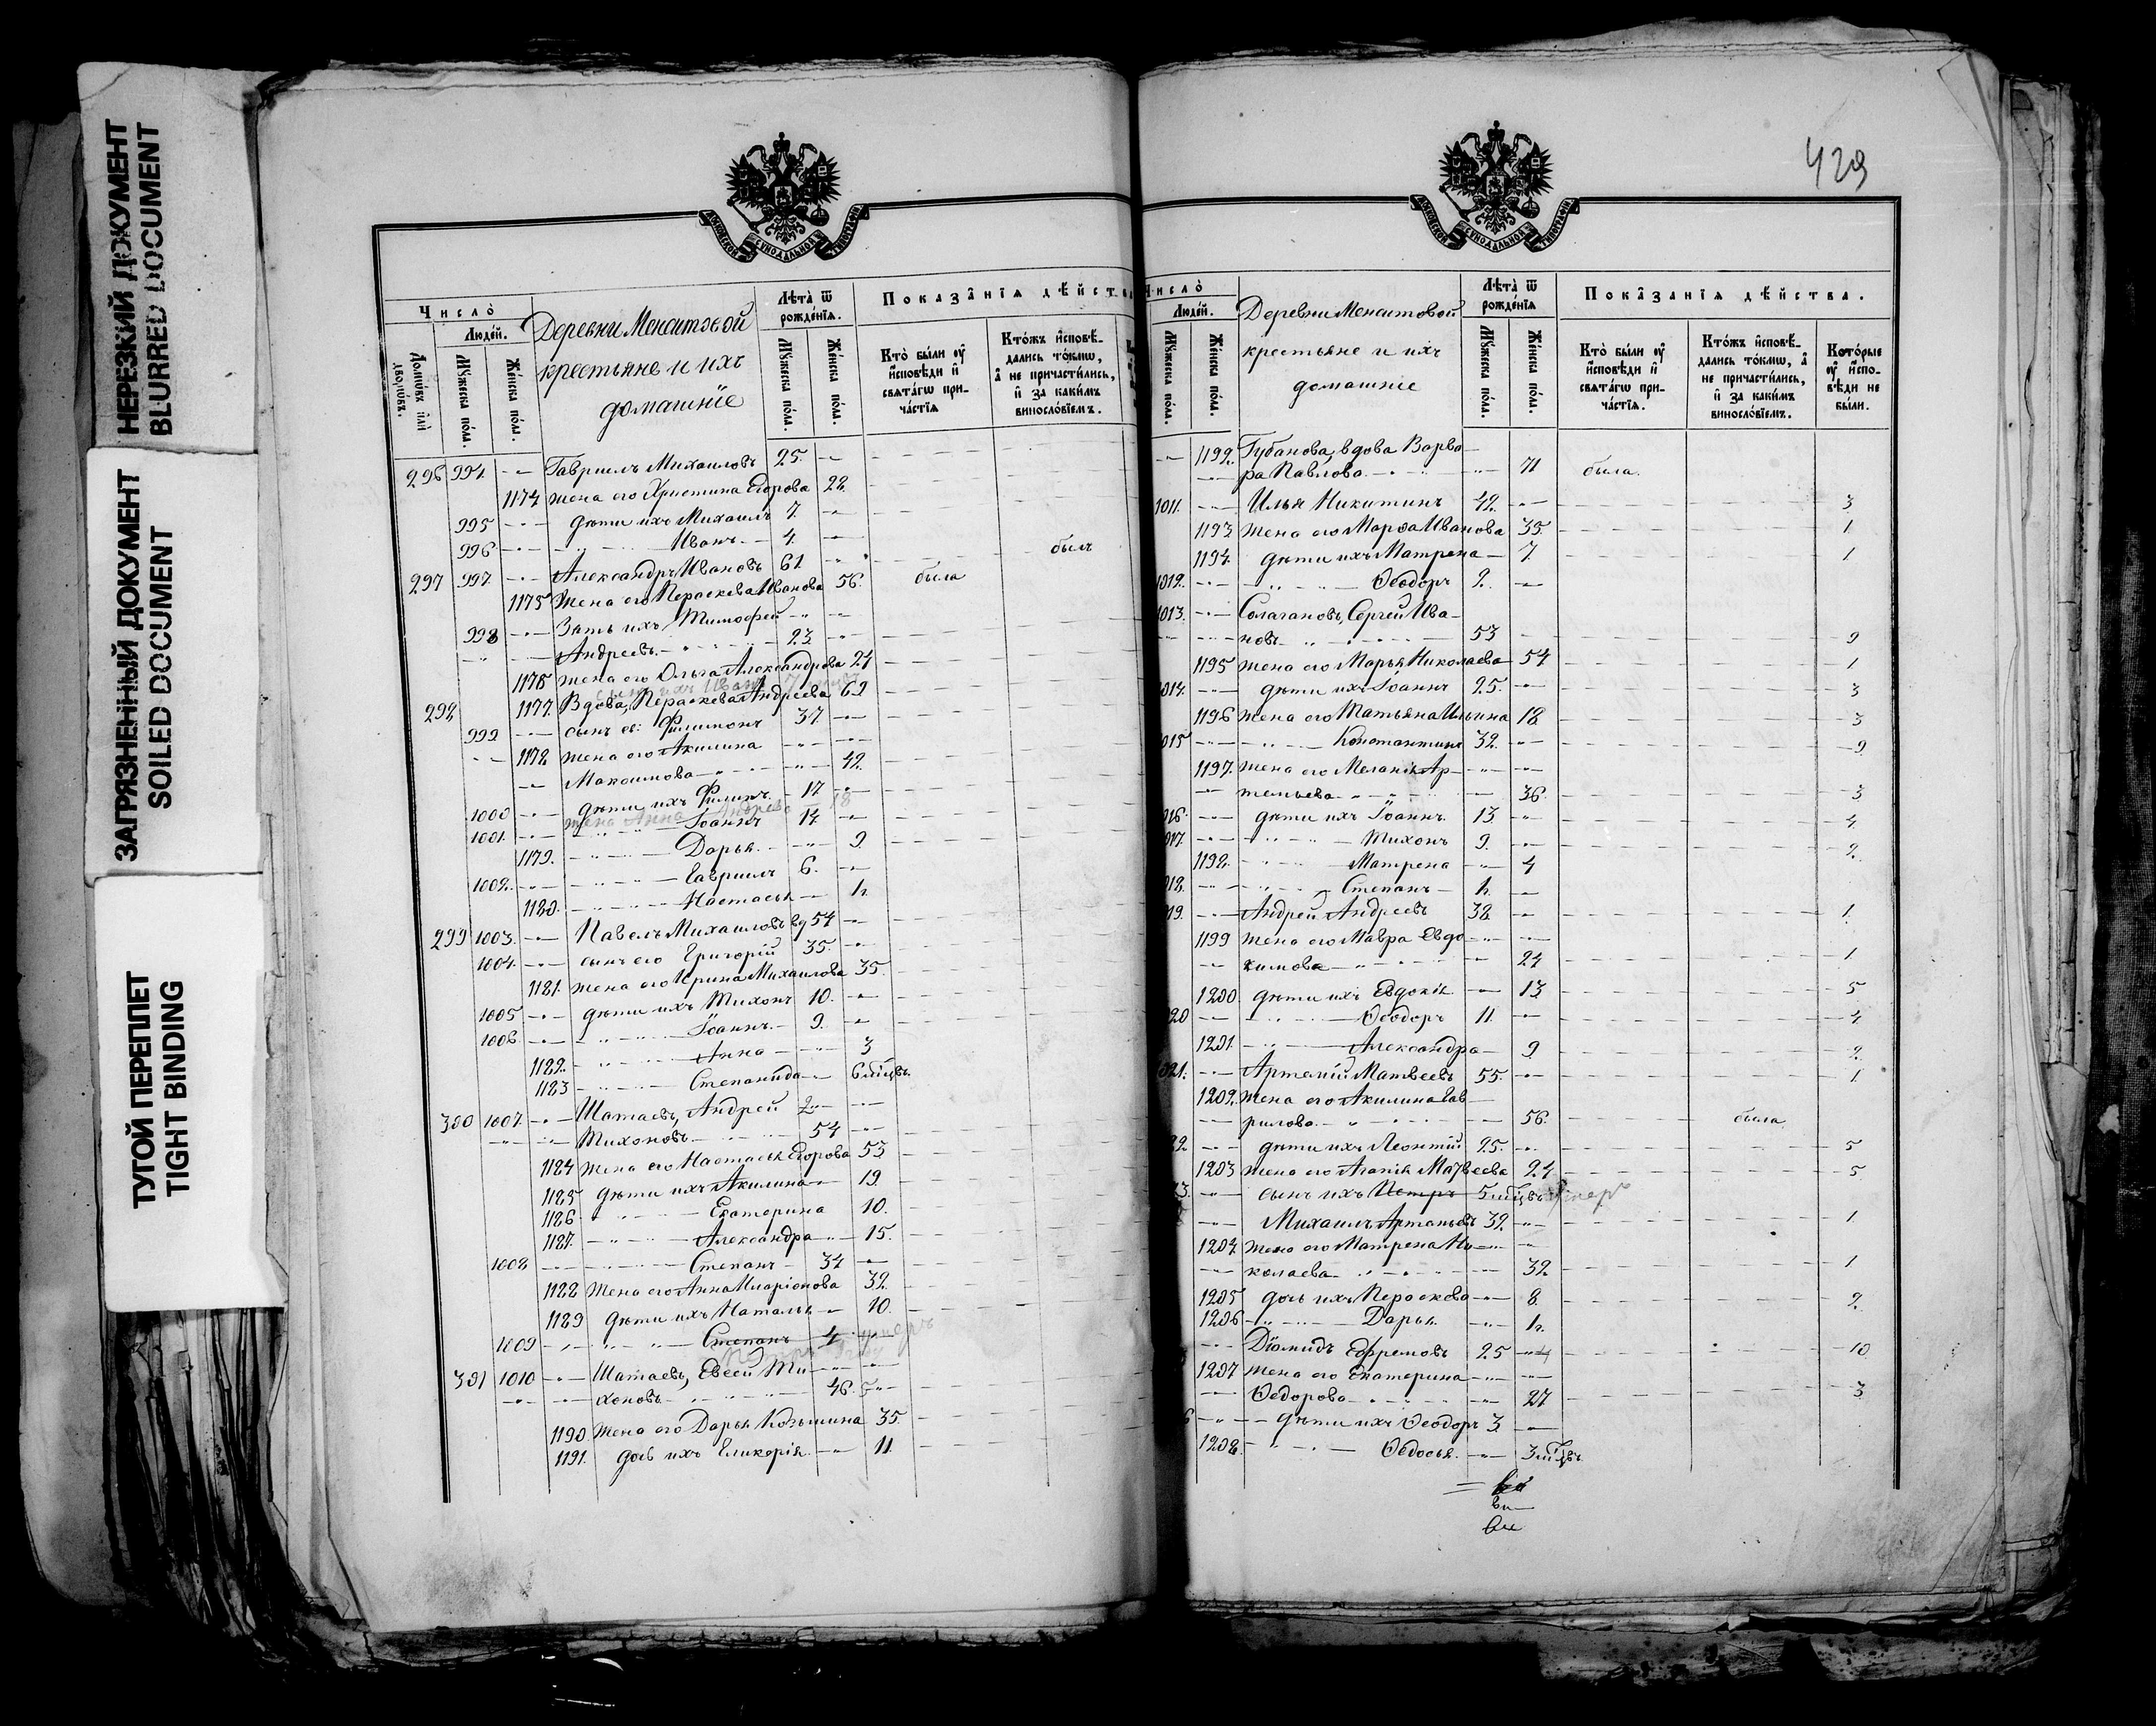 НЕРЕЗКИЙ ДОКУМЕНТ
BLURRED DOCUMENT
ЗАГРЯЗНЕННЫЙ ДОКУМЕНТ
SOILED DOCUMENT
ТУГОЙ ПЕРЕПЛЕТ
TIGHT BINDING
Число
Людей.
Домовъ или дворовъ.
Мужеска пола.
Женска пола.
Деревни Менситовой
крестьяне и ихъ
домашніе
Лѣта ѿ рожденія.
Мужеска пола.
Женска пола.
Показанія дѣйства
Кто были у исповѣди и святагѡ причастія
Ктожъ исповѣдались токмѡ, а не причастились, и за какимъ винословіемъ.
296 994 Гавріилъ Михаиловъ 25.
1174 жена его Христина Егорова 28.
995 дѣти ихъ Михаилъ 7.
996 Иванъ 4.
297 997 Александръ Ивановъ 61 былъ
1175 Жена его Пераскева Иванова 56. была
998 Зять ихъ Тимофей
Андреевъ 23
1176 жена его Ольга Александрова 24
298 1177. Вдова, Пераскева Андреева 69
999 сынъ ея: Филимонъ 37
1178 жена его Акилина
Максимова 42.
1000 дѣти ихъ Филипъ 17
жена Анна 18
1001. Іоаннъ 14
1179. Дарья 9
1002. Гавріилъ 6.
1180. Настасья ½
299 1003. Павелъ Михаиловъ вд 54
1004. сынъ его Григорій 35.
1181. жена его Ирина Михаилова 35.
1005 дѣти ихъ Тихонъ 10.
1006 Іоаннъ 9.
1182. Анна 3
1183 Степанида 6 мцвъ.
300 1007. Шатаевъ, Андрей
Тихоновъ 54
1184 Жена его Настасья Егорова 53
1185 дѣти ихъ Акилина 19.
1186 Екатерина 10.
1187. Александра 15.
1008 Степанъ 34
1188 Жена его Анна Иларіонова 32.
1189 дѣти ихъ Наталья 10.
1009 Степанъ 4
301 1010 Шатаевъ, Евсей Ти
хоновъ 46.
1190. Жена его Дарья Козьмина 35.
1191. дочь ихъ Гликерія 11.
429
Число
Людей.
Мужеска пола.
Женска пола.
Деревни Менситовой
крестьяне и ихъ
домашніе
Лѣта ѿ рожденія.
Мужеска пола.
Женска пола.
Показанія дѣйства.
Кто были у исповѣди и святагѡ причастія.
Ктожъ исповѣдались токмѡ, а не причастились, и за какимъ винословіемъ.
Которые у исповѣди не были.
1192. Губанова, вдова Варва
ра Павлова 71 была.
1011. Илья Никитинъ 42. 3
1193 Жена его Марѳа Иванова 35. 1
1194. дѣти ихъ Матрена 7. 1
1012. Ѳеодоръ 2.
1013. Салагановъ, Сергей Ива
новъ 53 9
1195 жена его Марья Николаева 54 1
1014. дѣти ихъ Іоаннъ 25. 3
1196 жена его Татьяна Ильина 18 3
1015 Константинъ 32. 9
1197. жена его Меланія Ар
темьева 36. 3
дѣти ихъ Іоаннъ 13. 4
Тихонъ 9. 2.
1198. Матрена 4
Степанъ ½
Андрей Андреевъ 38 1.
1199 жена его Мавра Евдо
кимова 24 1
1200. дѣти ихъ Евдокія 13 5
Ѳеодоръ 11. 4
1201. Александра 9 2.
1021. Артемій Матвеевъ 55. 1.
1202. жена его Акилина Гав
рилова 56. была
дѣти ихъ Леонтій 25. 5
1203 жена его Агапія Матвеева 24 5
сынъ ихъ Петръ 5 мцвъ умеръ
Михаилъ Артемьевъ 32. 1.
1204. жена его Матрена Ни
колаева 32. 1
1205 дочь ихъ Пераскева 8. 2.
1206 Дарья ½.
Діомидъ Ефремовъ 25 10
1207 жена его Екатерина
Ѳедорова 27 3
дѣти ихъ Ѳеодоръ 3.
1208. Ѳедосья 3 мцвъ